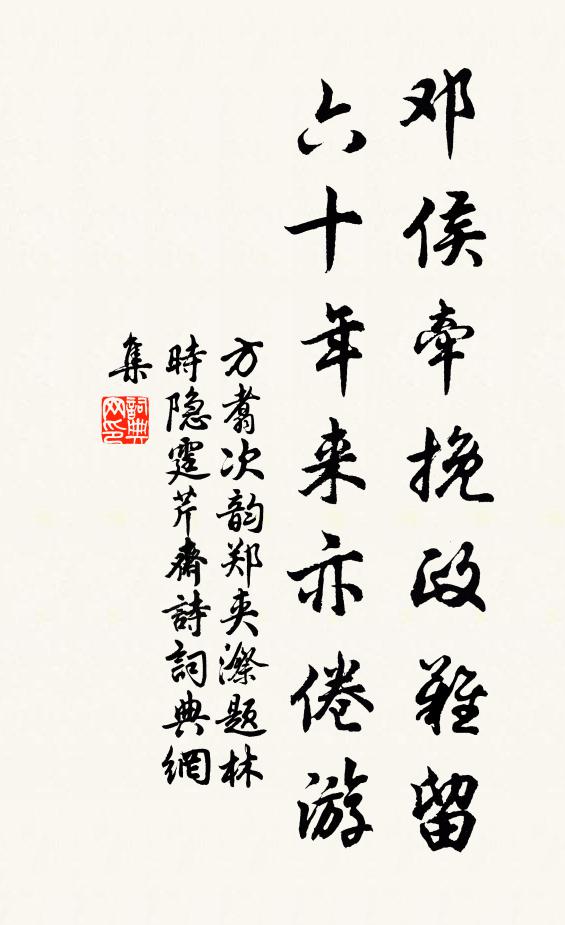 邓侯牵挽政难留
六十年来亦倦游
方翥次韵郑夹漈题林
時隐霆芹斋詩詞典網
集
詞典网印